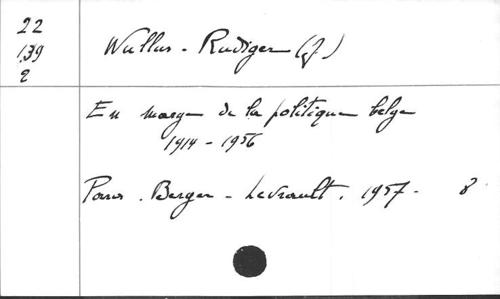 22
139
2
Wullus - Rudiger (J)
En marge de la politique belge
1914 - 1956
Paris. Berger - Levrault. 1957 - 8°